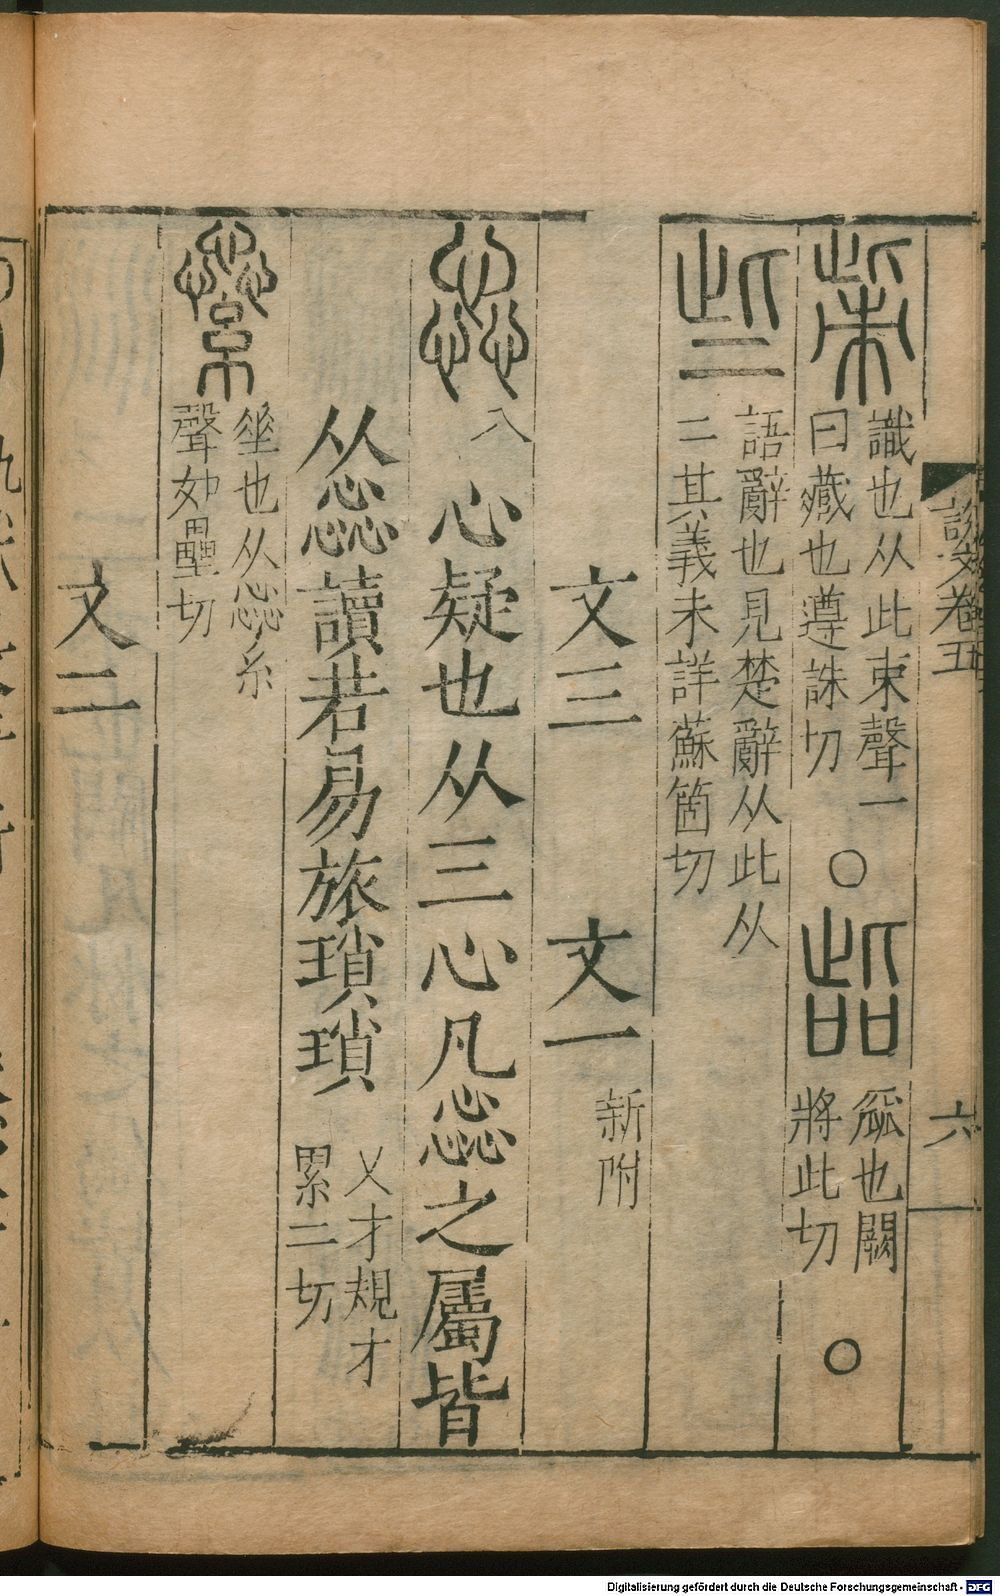 說文卷五
六
㭰
識也从此朿聲一
曰藏也遵誄切
○
呰
窳也闕
將此切
○
些
語辭也見楚辭从此从
二其義未詳蘇箇切
文三 文一
新附
惢
入
心疑也从三心凡惢之屬皆
从惢讀若易旅瑣瑣
又才規才
累二切
繠
垂也从惢糸
聲如壘切
文二
Digitalisierung gefördert durch die Deutsche Forschungsgemeinschaft - DFG